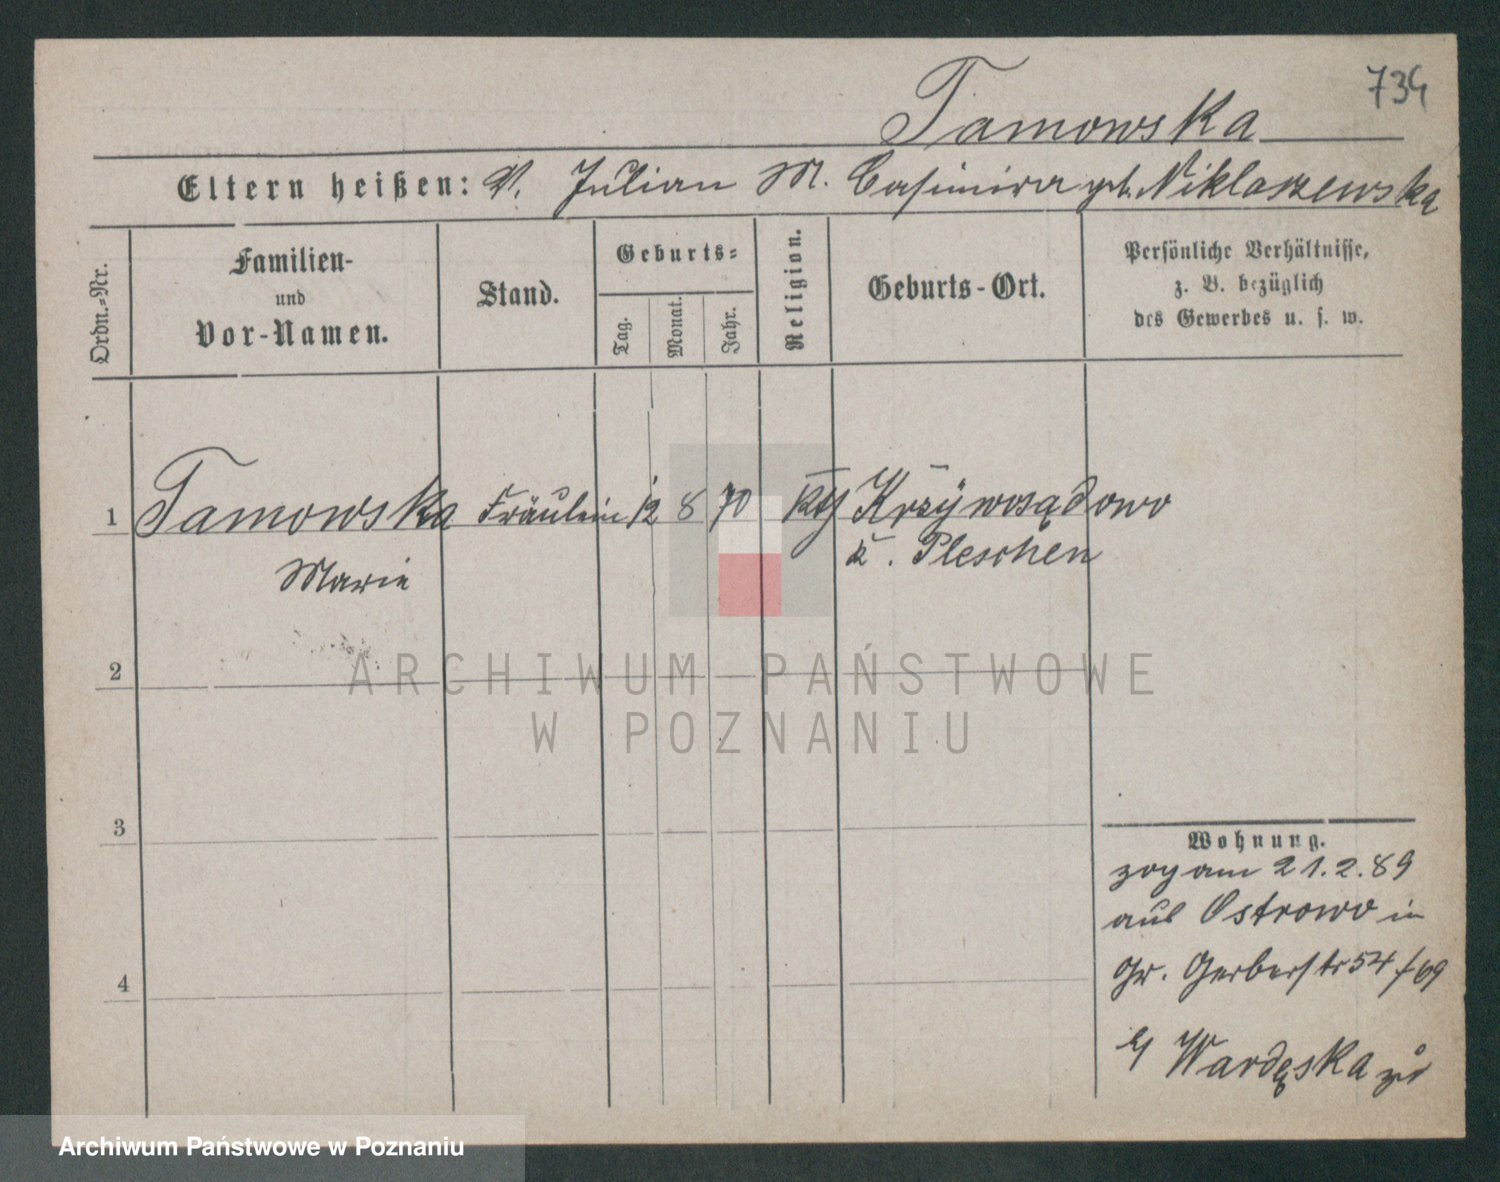 734
Tamowska
Eltern heißen: V. Julian M. Casimira geb. Niklaszewska
Ordn.-Nr.
Familien-
und
Vor-Namen.
Stand.
Geburts-
Tag.
Monat.
Jahr.
Religion.
Geburts-Ort.
Persönliche Verhältnisse,
z. B. bezüglich
des Gewerbes u. s. w.
1 Tamowska Fräulein 12 8 70 Kth Krzywosądowo
Marie
K. Pleschen
2
3
4
Wohnung.
zog am 21.2.89
aus Ostrowo in
Gr. Gerberstr 54 /69
b/ Wardęska zu
ARCHIWUM PAŃSTWOWE
W POZNANIU
Archiwum Państwowe w Poznaniu